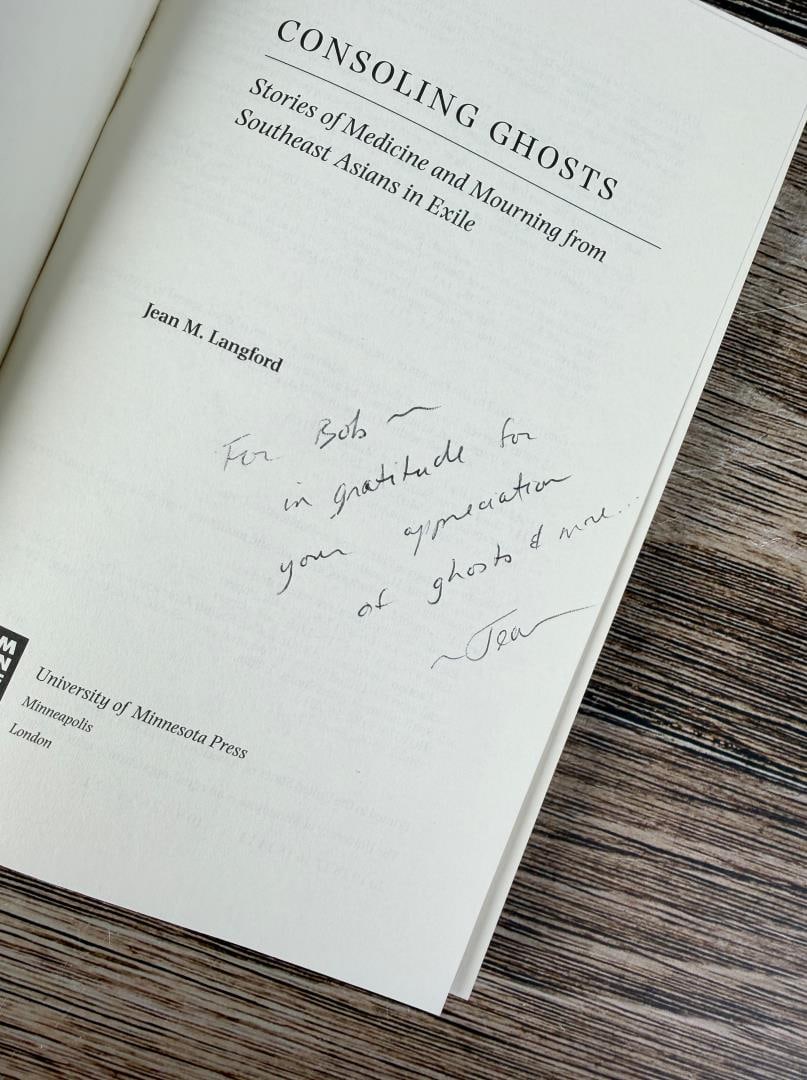 CONSOLING GHOSTS
Stories of Medicine and Mourning from
Southeast Asians in Exile
Jean M. Langford
For Bob ~
in gratitude for
your appreciation
of ghosts & more...
~Jean
M
N
University of Minnesota Press
Minneapolis
London